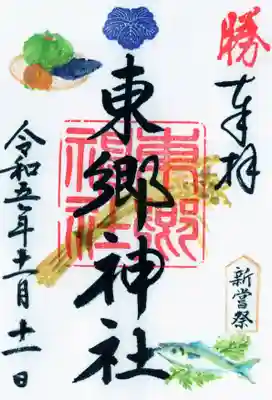 勝
奉拝
新嘗祭
東郷神社
東郷
神社
令和五年十一月十一日